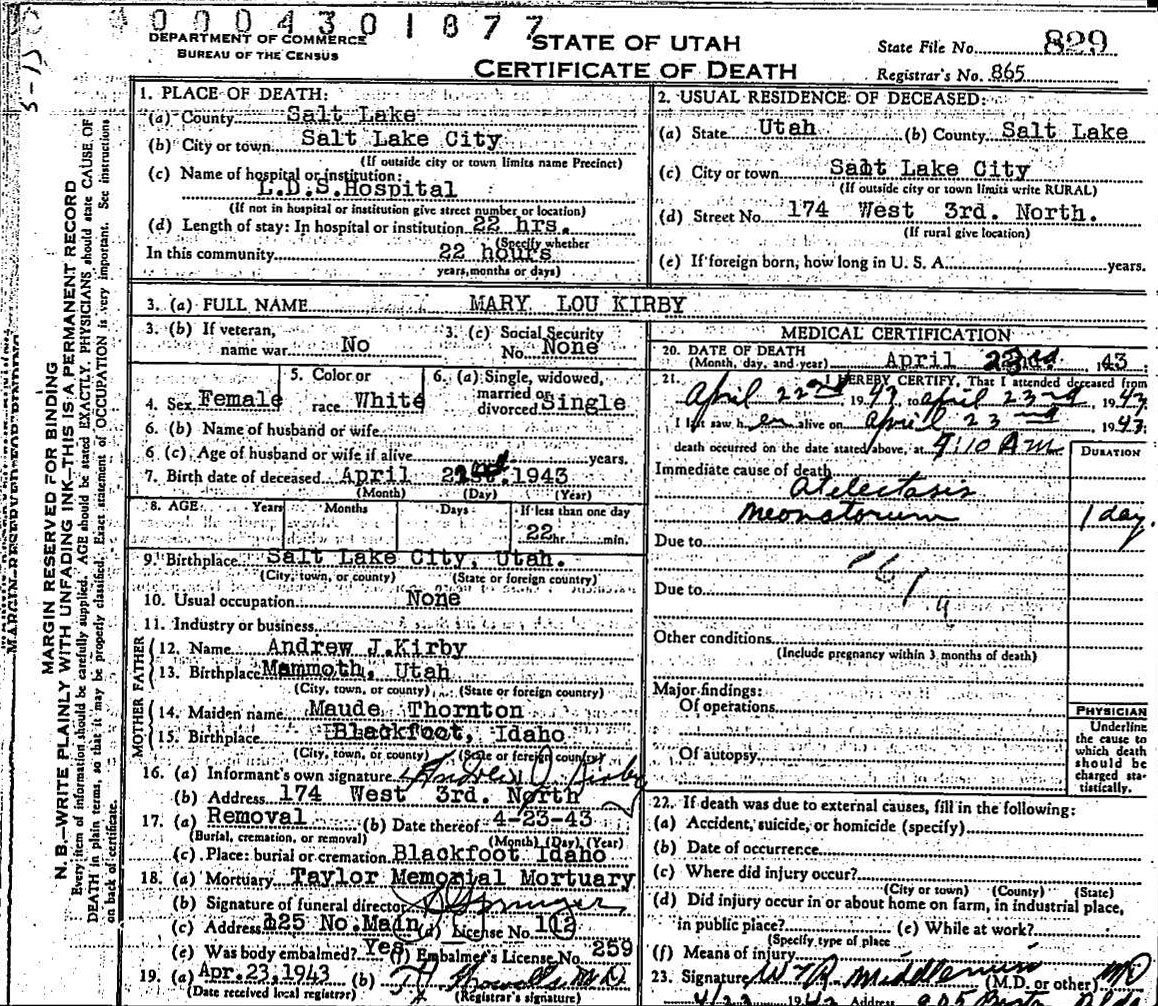 0004301877
DEPARTMENT OF COMMERCE
BUREAU OF THE CENSUS
STATE OF UTAH
CERTIFICATE OF DEATH
State File No. 829
Registrar's No. 865
MARGIN RESERVED FOR BINDING
N. B.—WRITE PLAINLY WITH UNFADING INK—THIS IS A PERMANENT RECORD
Every item of information should be carefully supplied. AGE should be stated EXACTLY. PHYSICIANS should state CAUSE OF
DEATH in plain terms, so that it may be properly classified. Exact statement of OCCUPATION is very important. See instructions
on back of certificate.
1. PLACE OF DEATH:
(a) County Salt Lake
(b) City or town Salt Lake City
(If outside city or town limits name Precinct)
(c) Name of hospital or institution:
L.D.S.Hospital
(If not in hospital or institution give street number or location)
(d) Length of stay: In hospital or institution 22 hrs.
(Specify whether
In this community 22 hours
years, months or days)
2. USUAL RESIDENCE OF DECEASED:
(a) State Utah (b) County Salt Lake
(c) City or town Salt Lake City
(If outside city or town limits write RURAL)
(d) Street No. 174 West 3rd. North.
(If rural give location)
(e) If foreign born, how long in U. S. A. years.
3. (a) FULL NAME MARY LOU KIRBY
3. (b) If veteran,
name war No
3. (c) Social Security
No. None
4. Sex Female
5. Color or
race White
6. (a) Single, widowed,
married or
divorced Single
6. (b) Name of husband or wife
6. (c) Age of husband or wife if alive years.
7. Birth date of deceased April 1943
(Month) (Day) (Year)
8. AGE Years Months Days If less than one day
22 hr. min.
9. Birthplace Salt Lake City, Utah.
(City, town, or county) (State or foreign country)
10. Usual occupation None
11. Industry or business
FATHER
12. Name Andrew J.Kirby
13. Birthplace Mammoth, Utah
(City, town, or county) (State or foreign country)
MOTHER
14. Maiden name Maude Thornton
15. Birthplace Blackfoot, Idaho
(City, town, or county) (State or foreign country)
16. (a) Informant's own signature Andrew J Kirby
(b) Address 174 West 3rd. North
17. (a) Removal (b) Date thereof 4-23-43
(Burial, cremation, or removal) (Month) (Day) (Year)
(c) Place: burial or cremation Blackfoot Idaho
18. (a) Mortuary Taylor Memorial Mortuary
(b) Signature of funeral director
(c) Address 125 No.Main (d) License No. 112
(e) Was body embalmed? Yes (f) Embalmer's License No. 259
19. (a) Apr.23,1943 (b)
(Date received local registrar) (Registrar's signature)
MEDICAL CERTIFICATION
20. DATE OF DEATH
(Month, day, and year) April 43
21. I HEREBY CERTIFY, That I attended deceased from
April 22nd 1943, to April 23rd 1943
I last saw her alive on April 23 1943;
death occurred on the date stated above, at 4:10 A m.
DURATION
Immediate cause of death
atelectasis
neonatorum 1 day.
Due to
Due to
Other conditions
(Include pregnancy within 3 months of death)
Major findings:
Of operations
Of autopsy
PHYSICIAN
Underline
the cause to
which death
should be
charged sta-
tistically.
22. If death was due to external causes, fill in the following:
(a) Accident, suicide, or homicide (specify)
(b) Date of occurrence
(c) Where did injury occur?
(City or town) (County) (State)
(d) Did injury occur in or about home on farm, in industrial place,
in public place? (e) While at work?
(Specify type of place
(f) Means of injury
23. Signature (M.D. or other) MD
Address